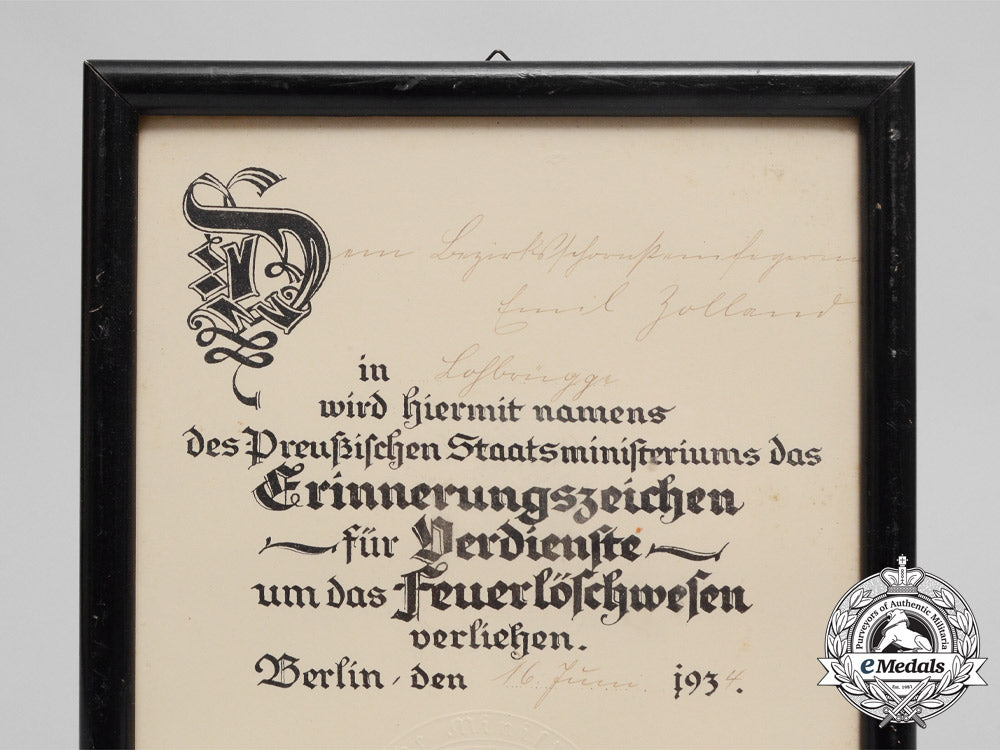 Dem Bezirksschornsteinfeger
Emil Zolland
in Lohbrügge
wird hiermit namens
des Preußischen Staatsministeriums das
Erinnerungszeichen
für Verdienste
um das Feuerlöschwesen
verliehen.
Berlin, den 16. Juni 1934.
Purveyors of Authentic Militaria
eMedals
Est. 1987